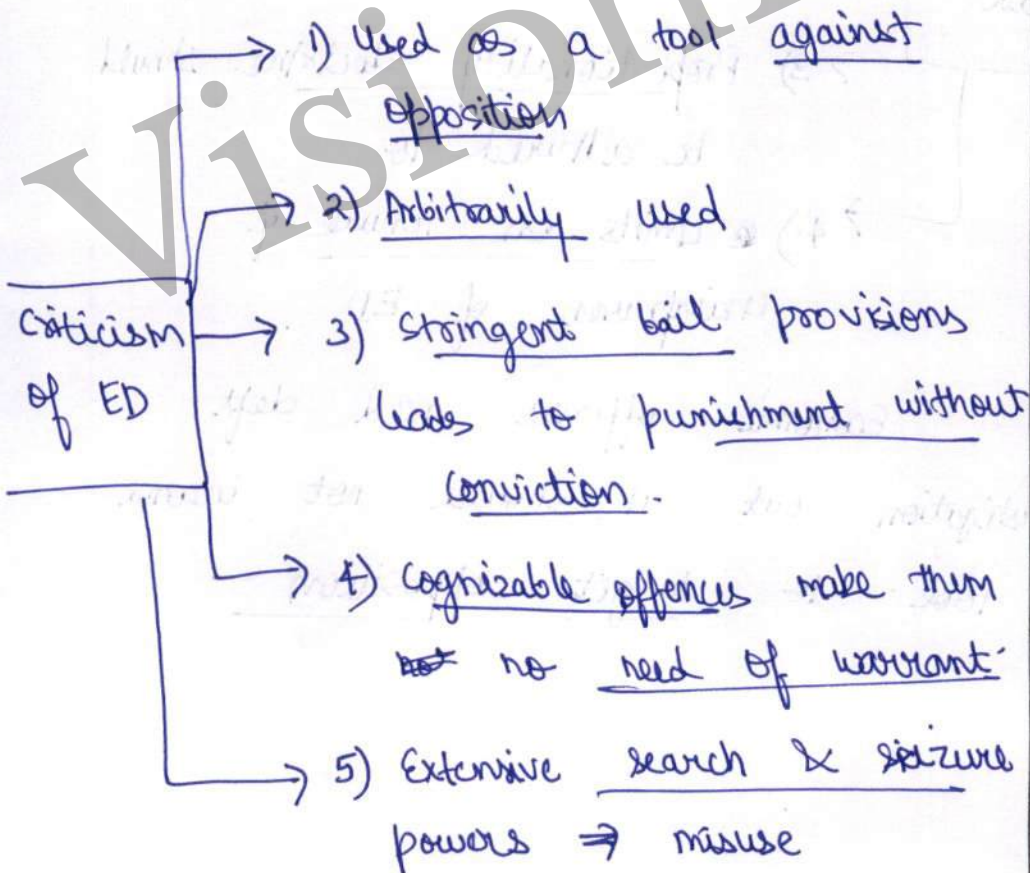 Vision
1) Used as a tool against
opposition
2) Arbitrarily used
Criticism
of ED
3) Stringent bail provisions
leads to punishment without
conviction.
4) Cognizable offences make them
no need of warrant.
5) Extensive search & seizure
powers ⇒ misuse